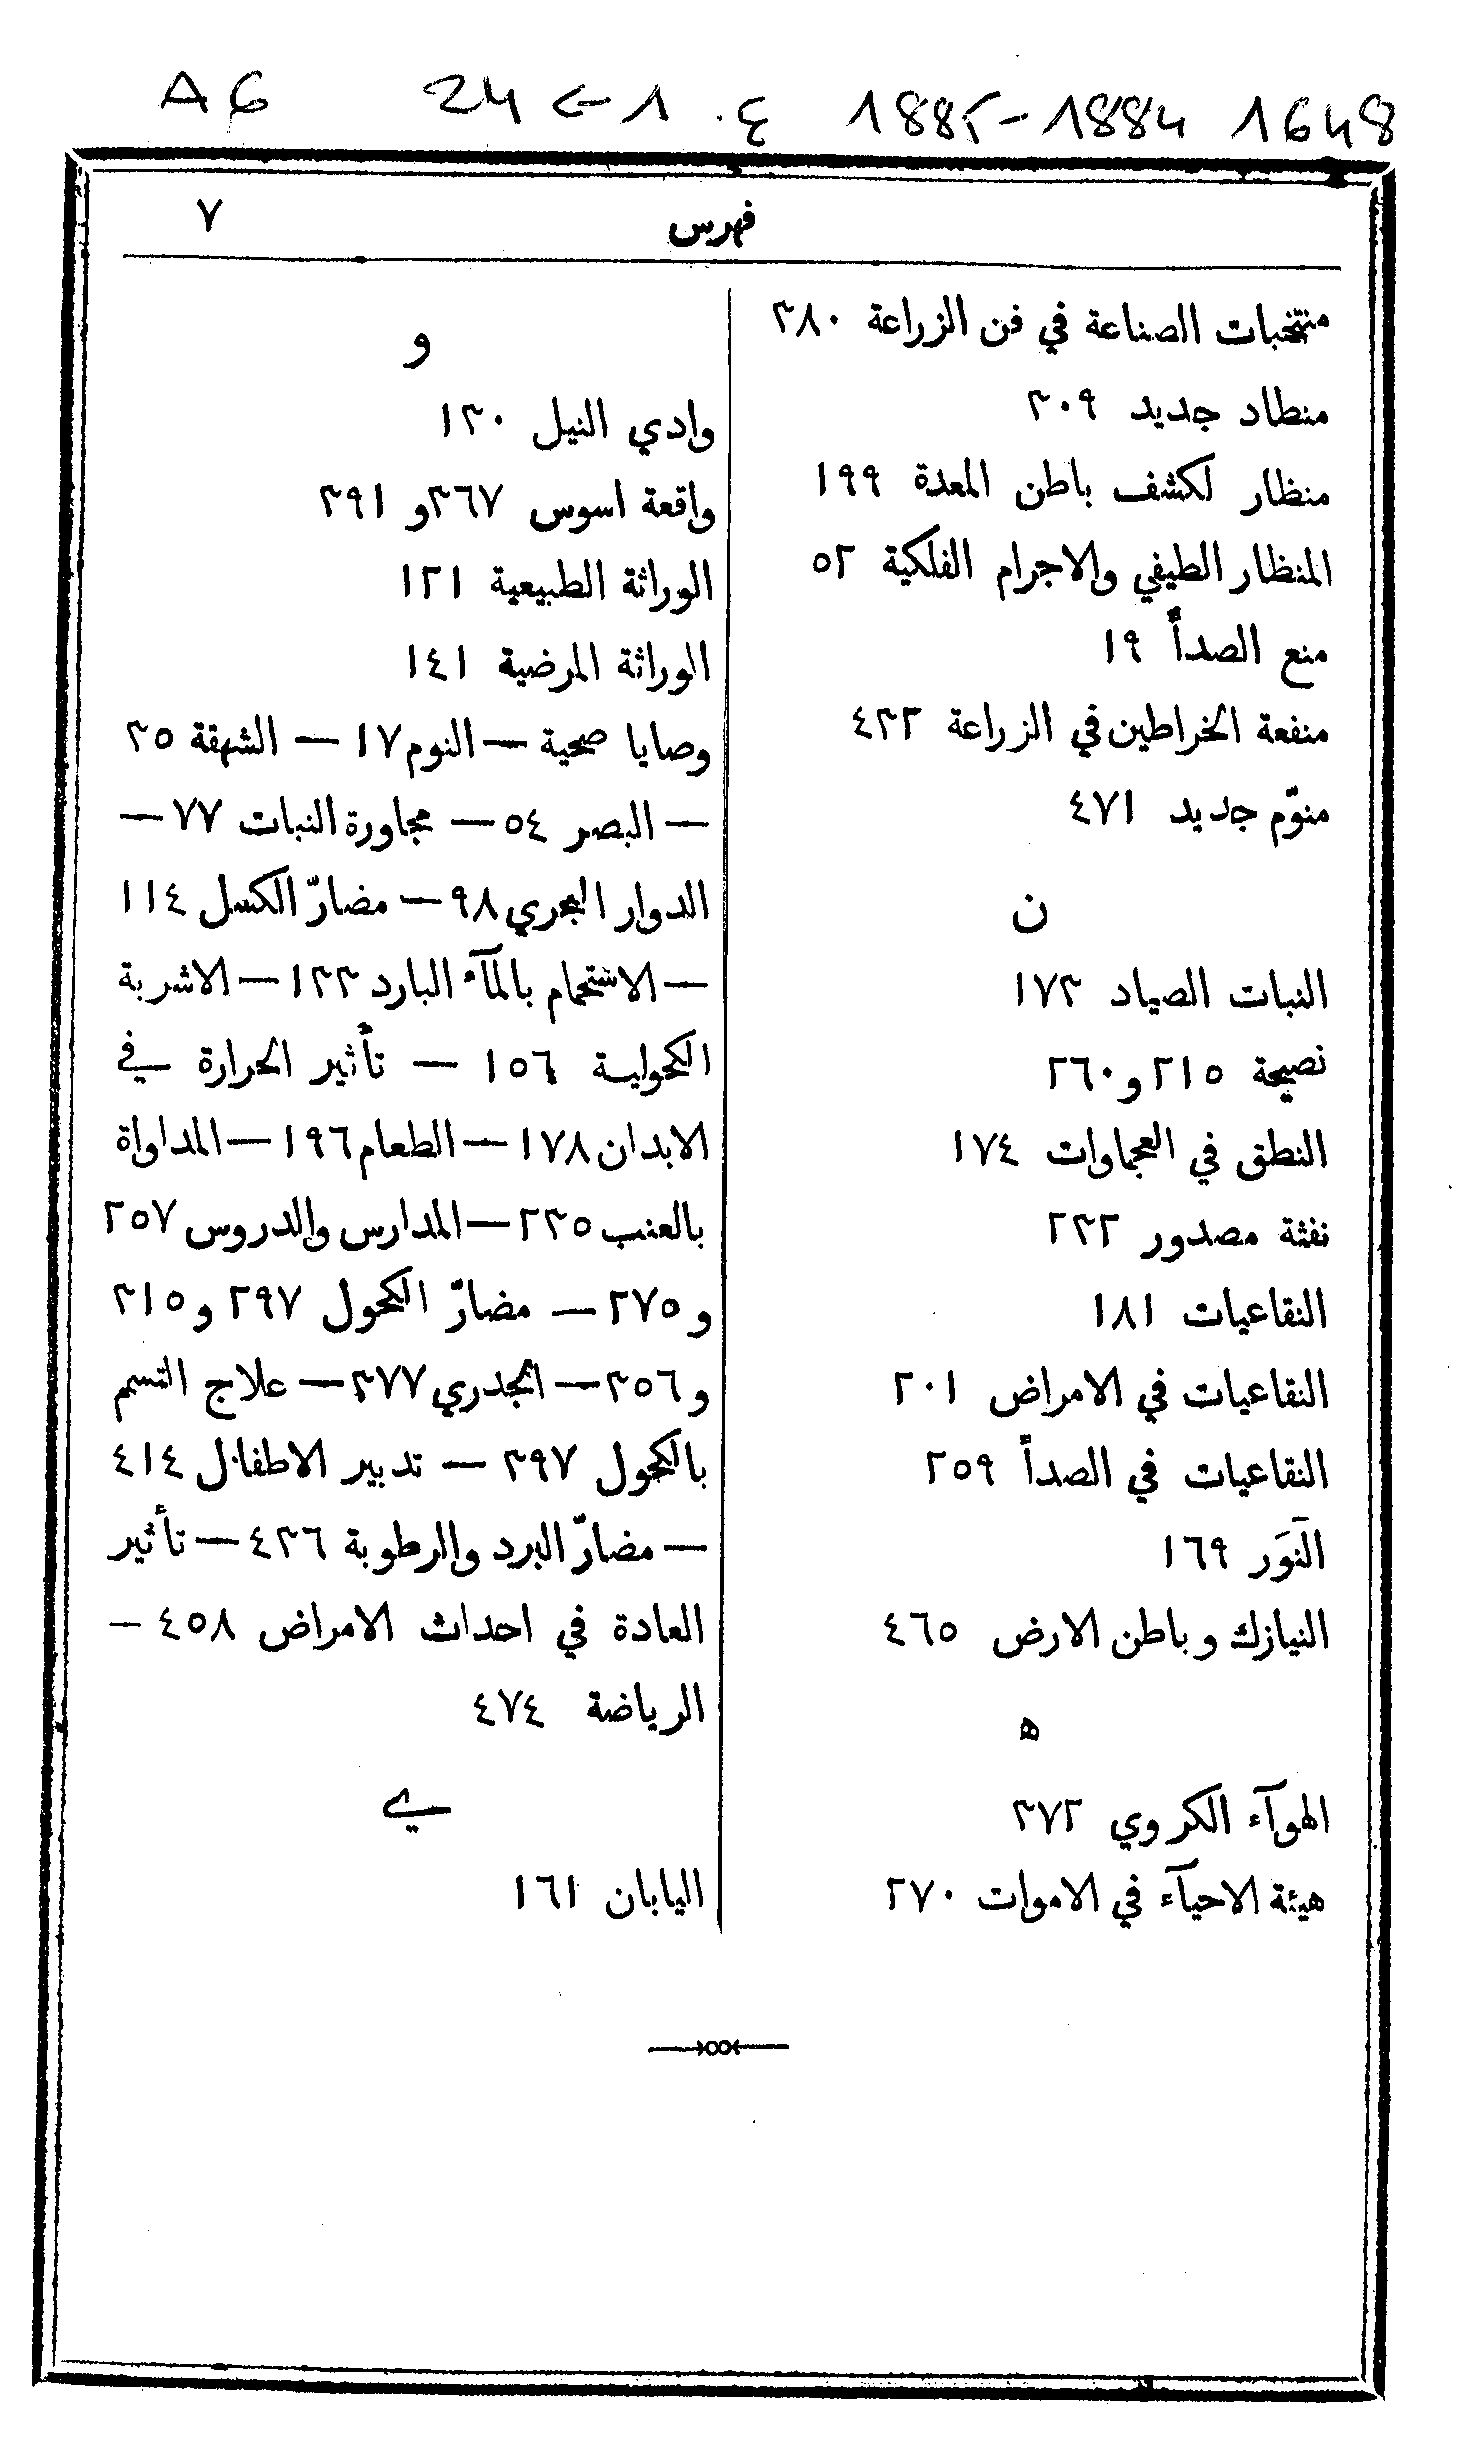 1648 1884-1885 ع. 1 -> 24 A6
فهرس ٧
منتخبات الصناعة في فن الزراعة ٣٨٠
منطاد جديد ٣٠٩
منظار لكشف باطن المعدة ١٩٩
المنظار الطيفي والاجرام الفلكية ٥٢
منع الصدأ ١٩
منفعة الخراطين في الزراعة ٤٣٢
منوّم جديد ٤٧١
ن
النبات الصياد ١٧٣
نصيحة ٢١٥ و٢٦٠
النطق في العجماوات ١٧٤
نفثة مصدور ٢٣٢
النقاعيات ١٨١
النقاعيات في الامراض ٢٠١
النقاعيات في الصدأ ٢٥٩
النَوَر ١٦٩
النيازك وباطن الارض ٤٦٥
ه
الهوآء الكروي ٣٧٢
هيئة الاحيآء في الاموات ٢٧٠
و
وادي النيل ١٣٠
واقعة اسوس ٣٦٧ و ٣٩١
الوراثة الطبيعية ١٢١
الوراثة المرضية ١٤١
وصايا صحية — النوم ١٧ — الشهقة ٣٥
— البصر ٥٤ — مجاورة النبات ٧٧ —
الدوار البحري ٩٨ — مضارّ الكسل ١١٤
— الاستحمام بالمآء البارد ١٣٣ — الاشربة
الكحولية ١٥٦ — تأثير الحرارة في
الابدان ١٧٨ — الطعام ١٩٦ — المداواة
بالعنب ٢٣٥ — المدارس والدروس ٢٥٧
و ٢٧٥ — مضارّ الكحول ٢٩٧ و ٣١٥
و ٣٥٦ — الجدري ٣٧٧ — علاج التسمم
بالكحول ٣٩٧ — تدبير الاطفال ٤١٤
— مضارّ البرد والرطوبة ٤٣٦ — تأثير
العادة في احداث الامراض ٤٥٨ —
الرياضة ٤٧٤
ي
اليابان ١٦١